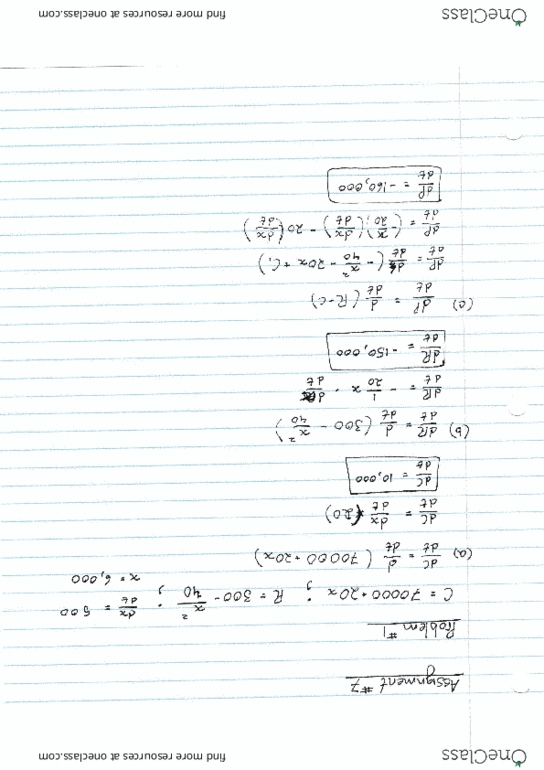 OneClass
find more resources at oneclass.com
Assignment #7
Problem #1
C = 70000 + 20x ; R = 300 - x²/40 ; dx/dt = 500
x = 6,000
(a) dC/dt = d/dt (70000 + 20x)
dC/dt = dx/dt (20)
dC/dt = 10,000
(b) dR/dt = d/dt (300 - x²/40)
dR/dt = - 1/20 x · dx/dt
dR/dt = -150,000
(c) dP/dt = d/dt (R-C)
dP/dt = d/dt (- x²/40 - 20x + C₁)
dP/dt = (- x/20) (dx/dt) - 20 (dx/dt)
dP/dt = -160,000
OneClass
find more resources at oneclass.com